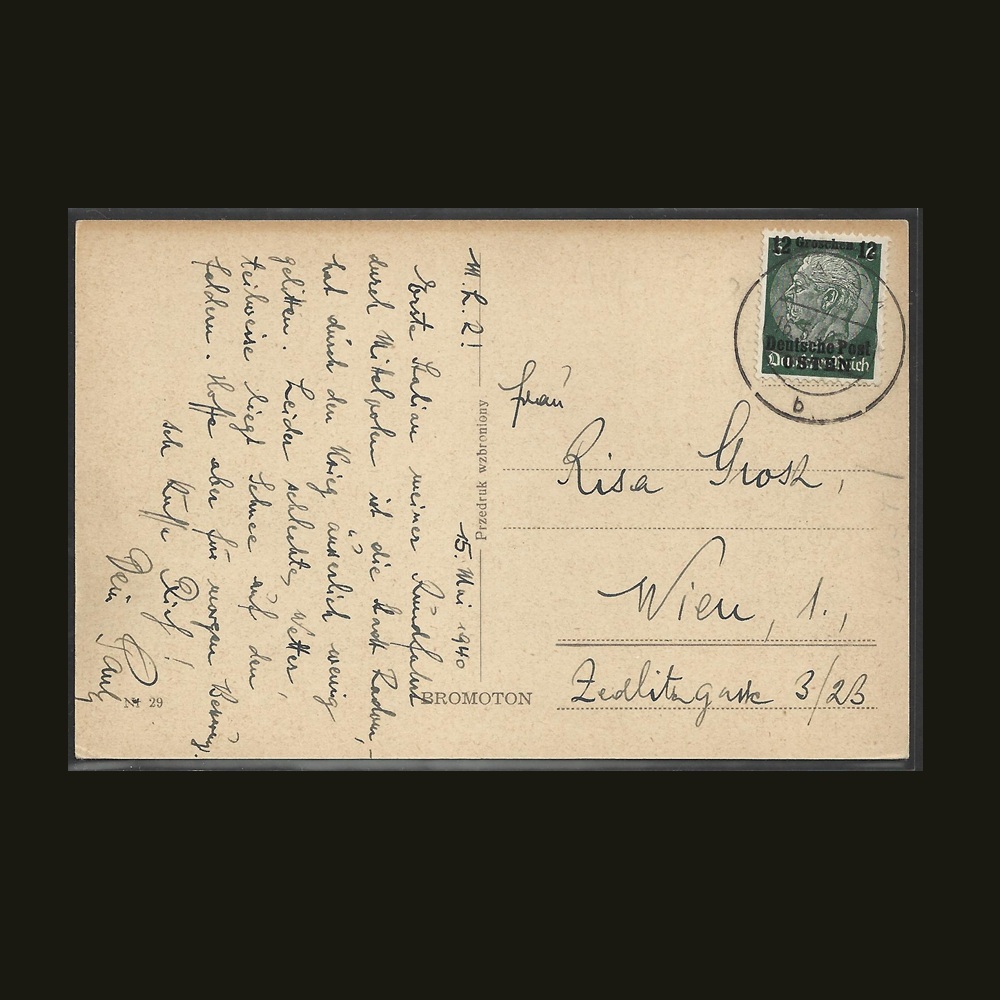 M. L. R!
15. Mai 1940
Erste Station meiner Rundfahrt
durch Mittelpolen ist die Stadt Radom,
hat durch den Krieg äusserlich wenig
gelitten. Leider schlechtes Wetter,
teilweise liegt Schnee auf den
Feldern. Hoffe aber für morgen
Ich Küsse Dich!
Dein Paul
Przedruk wzbroniony
BROMOTON
Nr. 29
12 Groschen 12
Deutsche Post
OSTEN
b
Frau
Risa Grosz,
Wien, 1.,
Zedlitzgasse 3/23